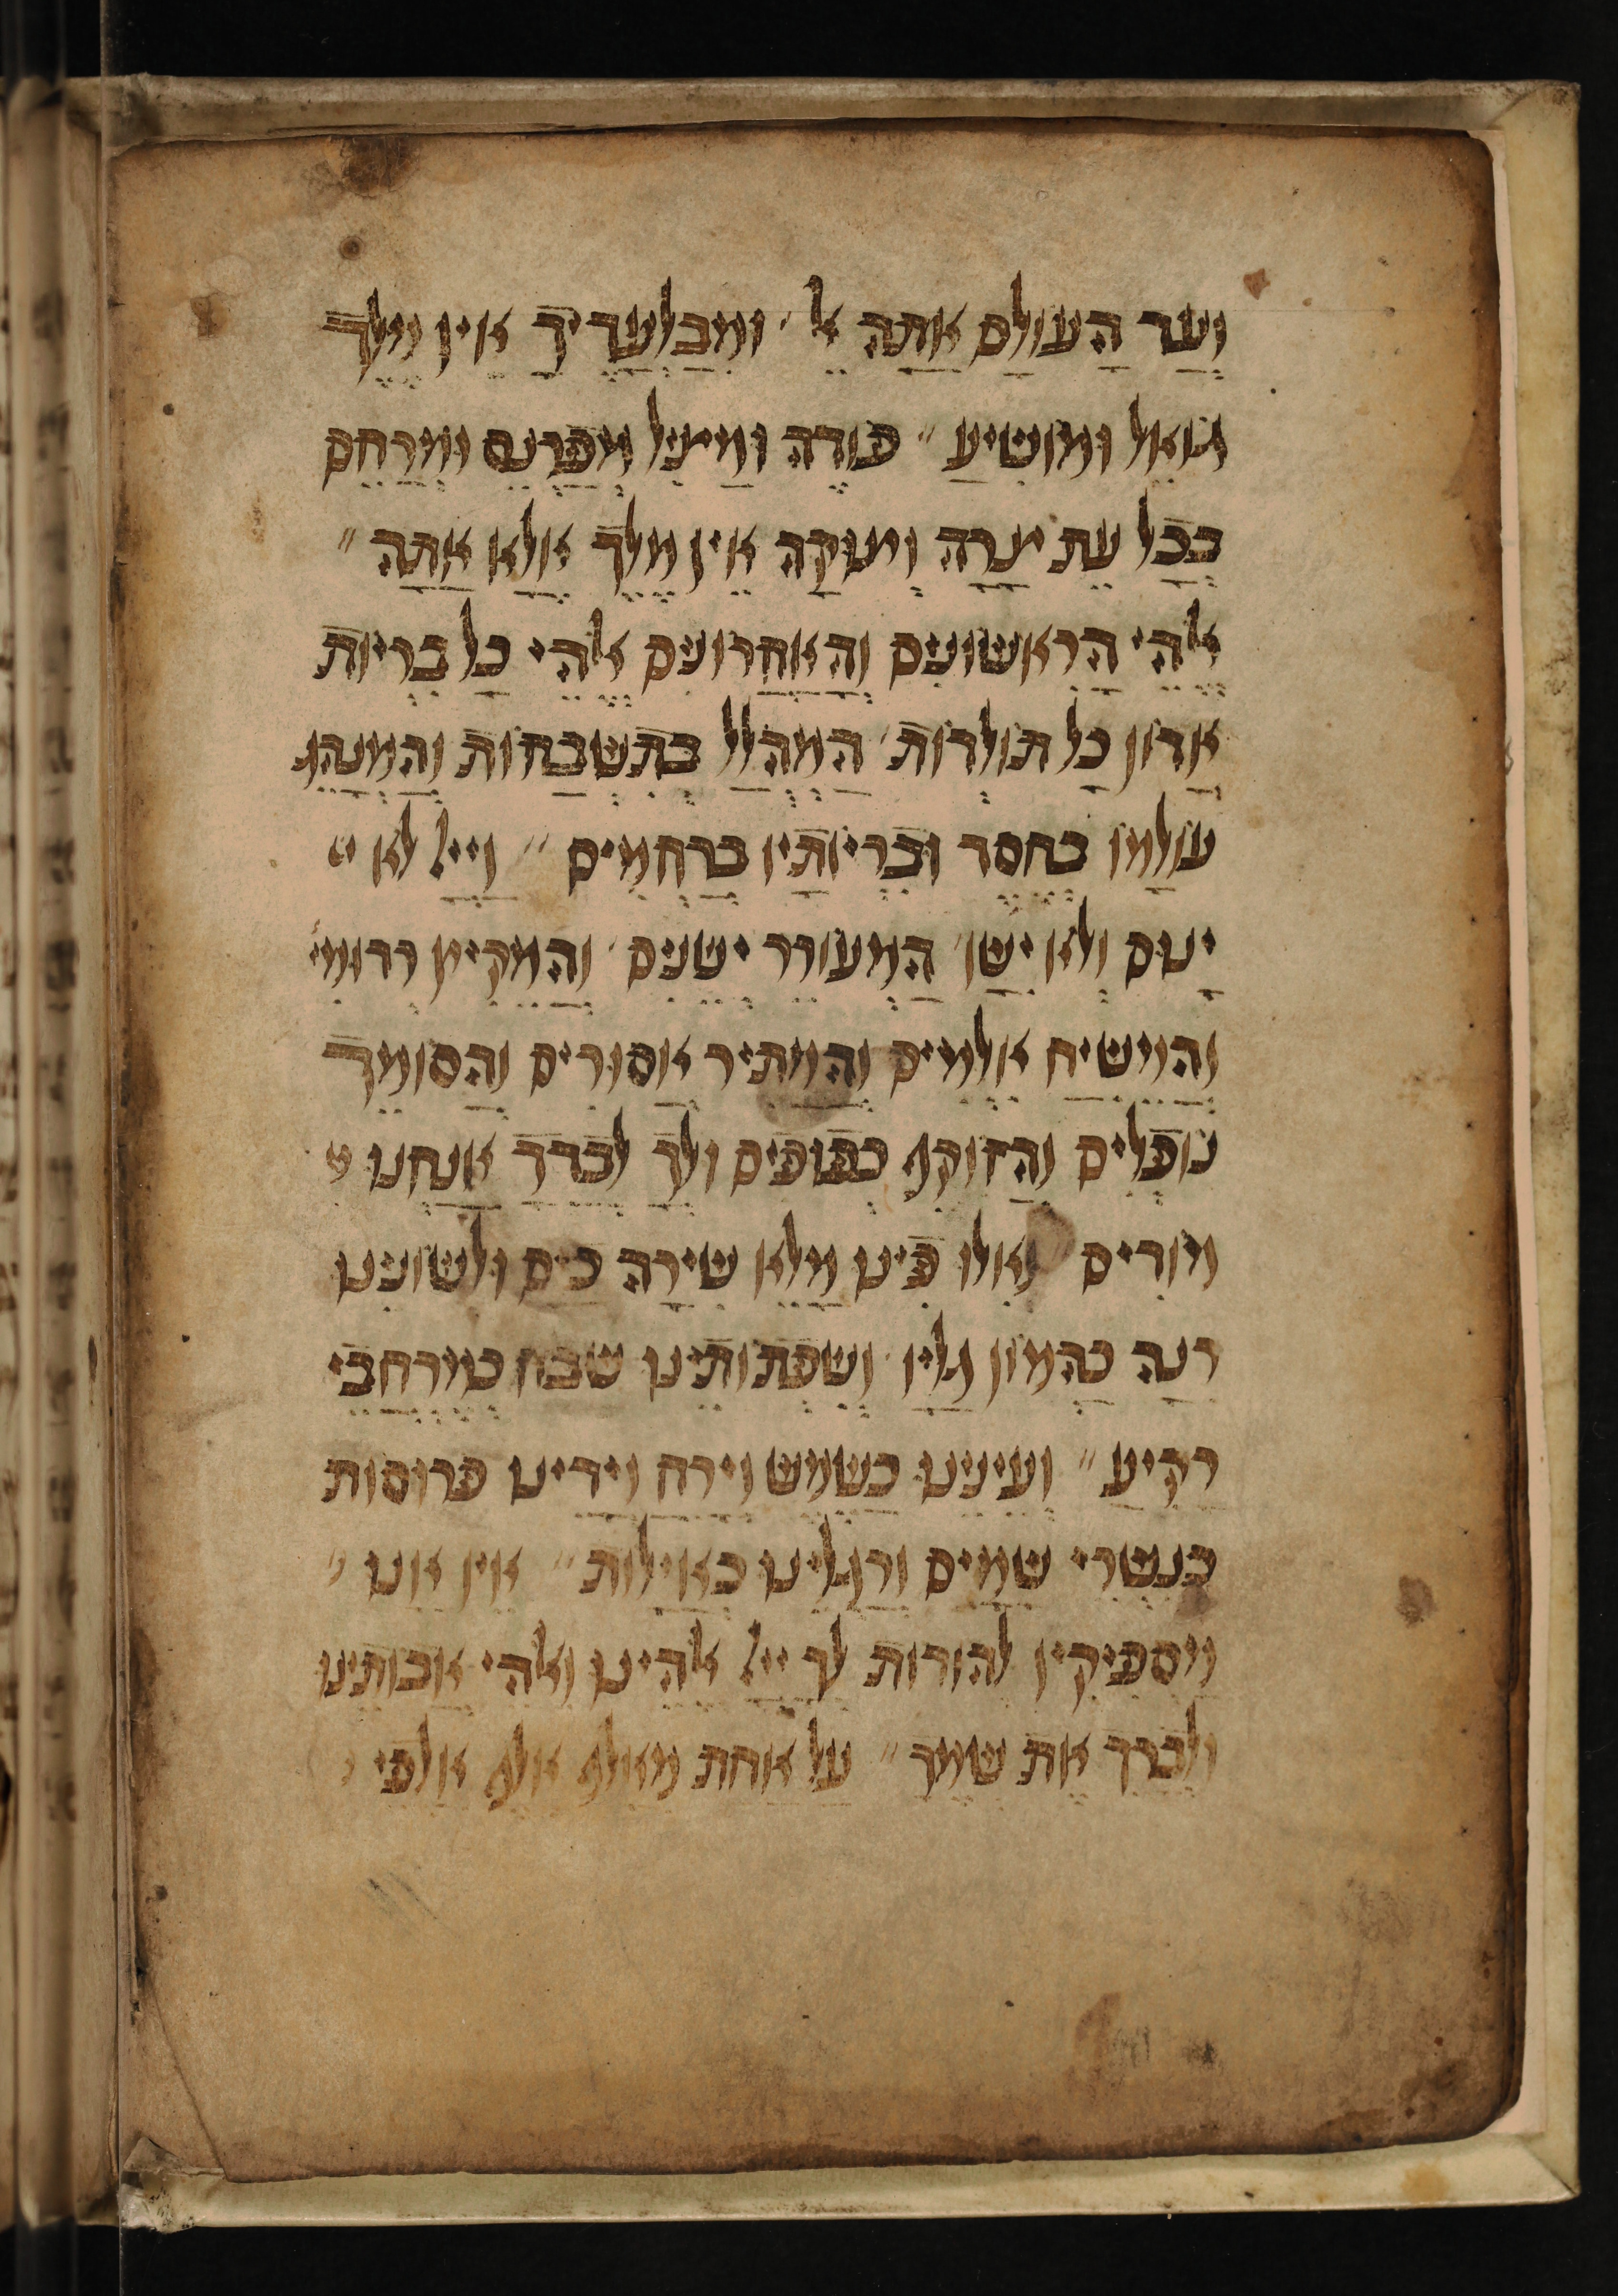 ועד העולם אתה אל ׳ ומבלעדיך אין מלך
גואל ומושיע ״ פודה ומציל מפרנס ומרחם
בכל עת צרה וצוקה אין מלך אלא אתה ״
אלהי הראשונים והאחרונים אלהי כל בריות
אדון כל תולדות ׳ המהלל בתשבחות והמנהג
עולמו בחסד ובריותיו ברחמים ״ וייי לא
ינום ולא ישן ׳ המעורר ישנים ׳ והמקיץ רדומי׳
והמשיח אלמים והמתיר אסורים והסומך
נופלים והזוקף כפופים ולך לבדך אנחנו מ
מודים ואלו פינו מלא שירה כים ולשונינו
רנה כהמון גליו ׳ ושפתותינו שבח כמרחבי
רקיע ״ ועינינו כשמש וירח וידינו פרוסות
כנשרי שמים ורגלינו כאילות ״ אין אנו
מספיקין להודות לך ייי אלהינו ואלהי אבותינו
ולברך את שמך ״ על אחת מאלף אלף אלפי